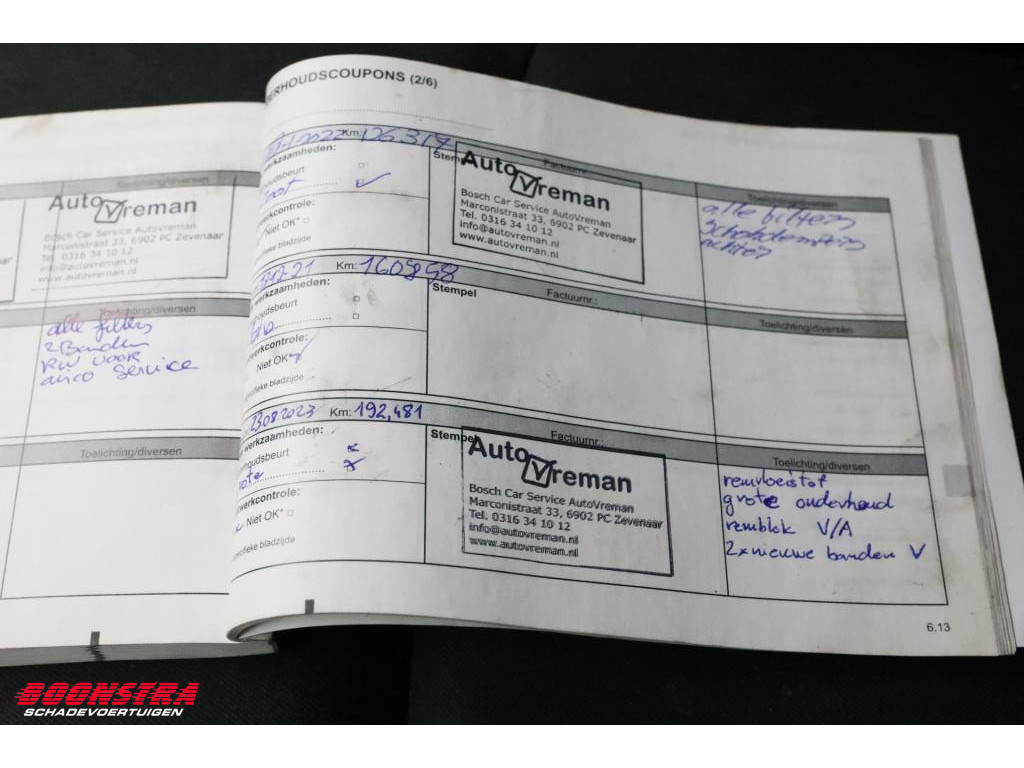 Toelichting/diversen
AutoVreman
Bosch Car Service AutoVreman
Marconistraat 33, 6902 PC Zevenaar
Tel. 0316 34 10 12
info@autovreman.nl
www.autovreman.nl
Toelichting/diversen
alle filters
2 Banden
RW VOOR
airco service
Toelichting/diversen
ERHOUDSCOUPONS (2/6)
1-2022 Km: 126.317
werkzaamheden:
Stem
Factuurnr.:
Toelichting/diversen
houdsbeurt
werkcontrole:
Niet OK*
ifieke bladzijde
AutoVreman
Bosch Car Service AutoVreman
Marconistraat 33, 6902 PC Zevenaar
Tel. 0316 34 10 12
info@autovreman.nl
www.autovreman.nl
alle filters
Schokdempers
achter
12-21 Km: 160898
werkzaamheden:
Stempel
Factuurnr.:
Toelichting/diversen
houdsbeurt
werkcontrole:
Niet OK*
ecifieke bladzijde
23.08.2023 Km: 192,481
werkzaamheden:
Stempel
Factuurnr.:
Toelichting/diversen
houdsbeurt
werkcontrole:
Niet OK*
ecifieke bladzijde
AutoVreman
Bosch Car Service AutoVreman
Marconistraat 33, 6902 PC Zevenaar
Tel. 0316 34 10 12
info@autovreman.nl
www.autovreman.nl
remvloeistof
grote onderhoud
remblok V/A
2x nieuwe banden V
6.13
BOONSTRA
SCHADEVOERTUIGEN